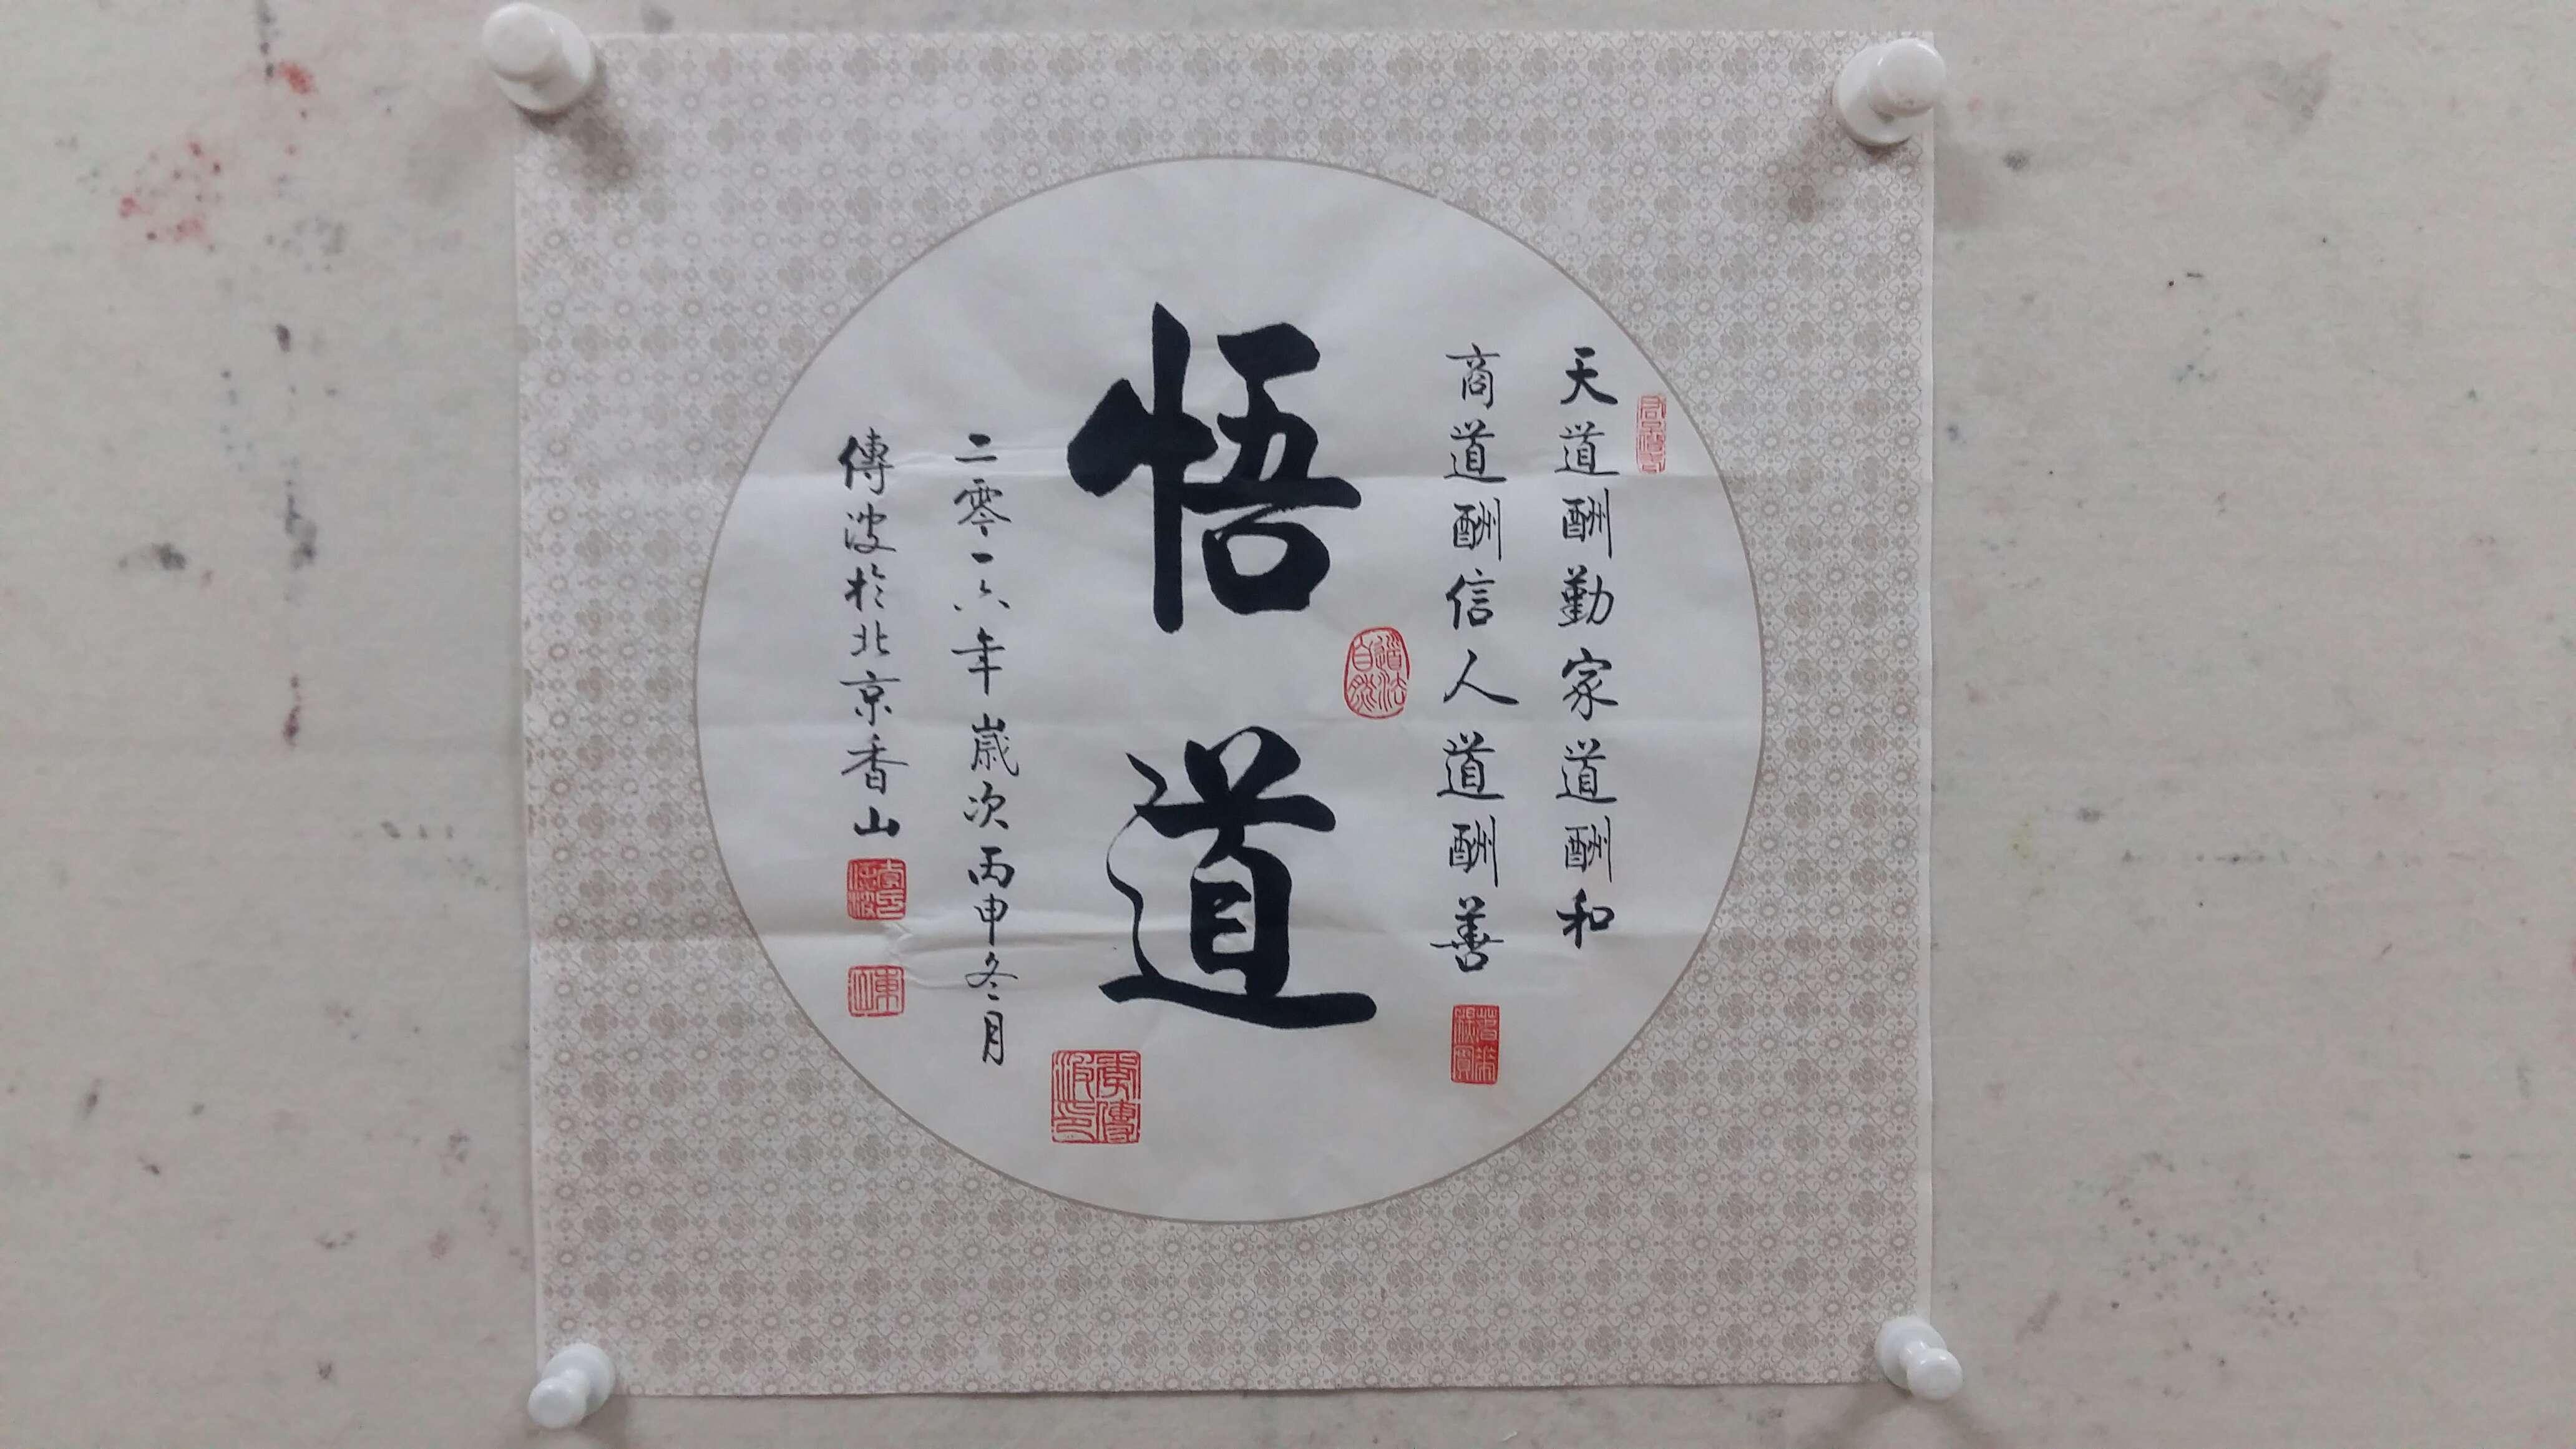 天道酬勤家道酬和
商道酬信人道酬善
道法自然
悟道
二零一六年歲次丙申冬月
傳波於北京香山